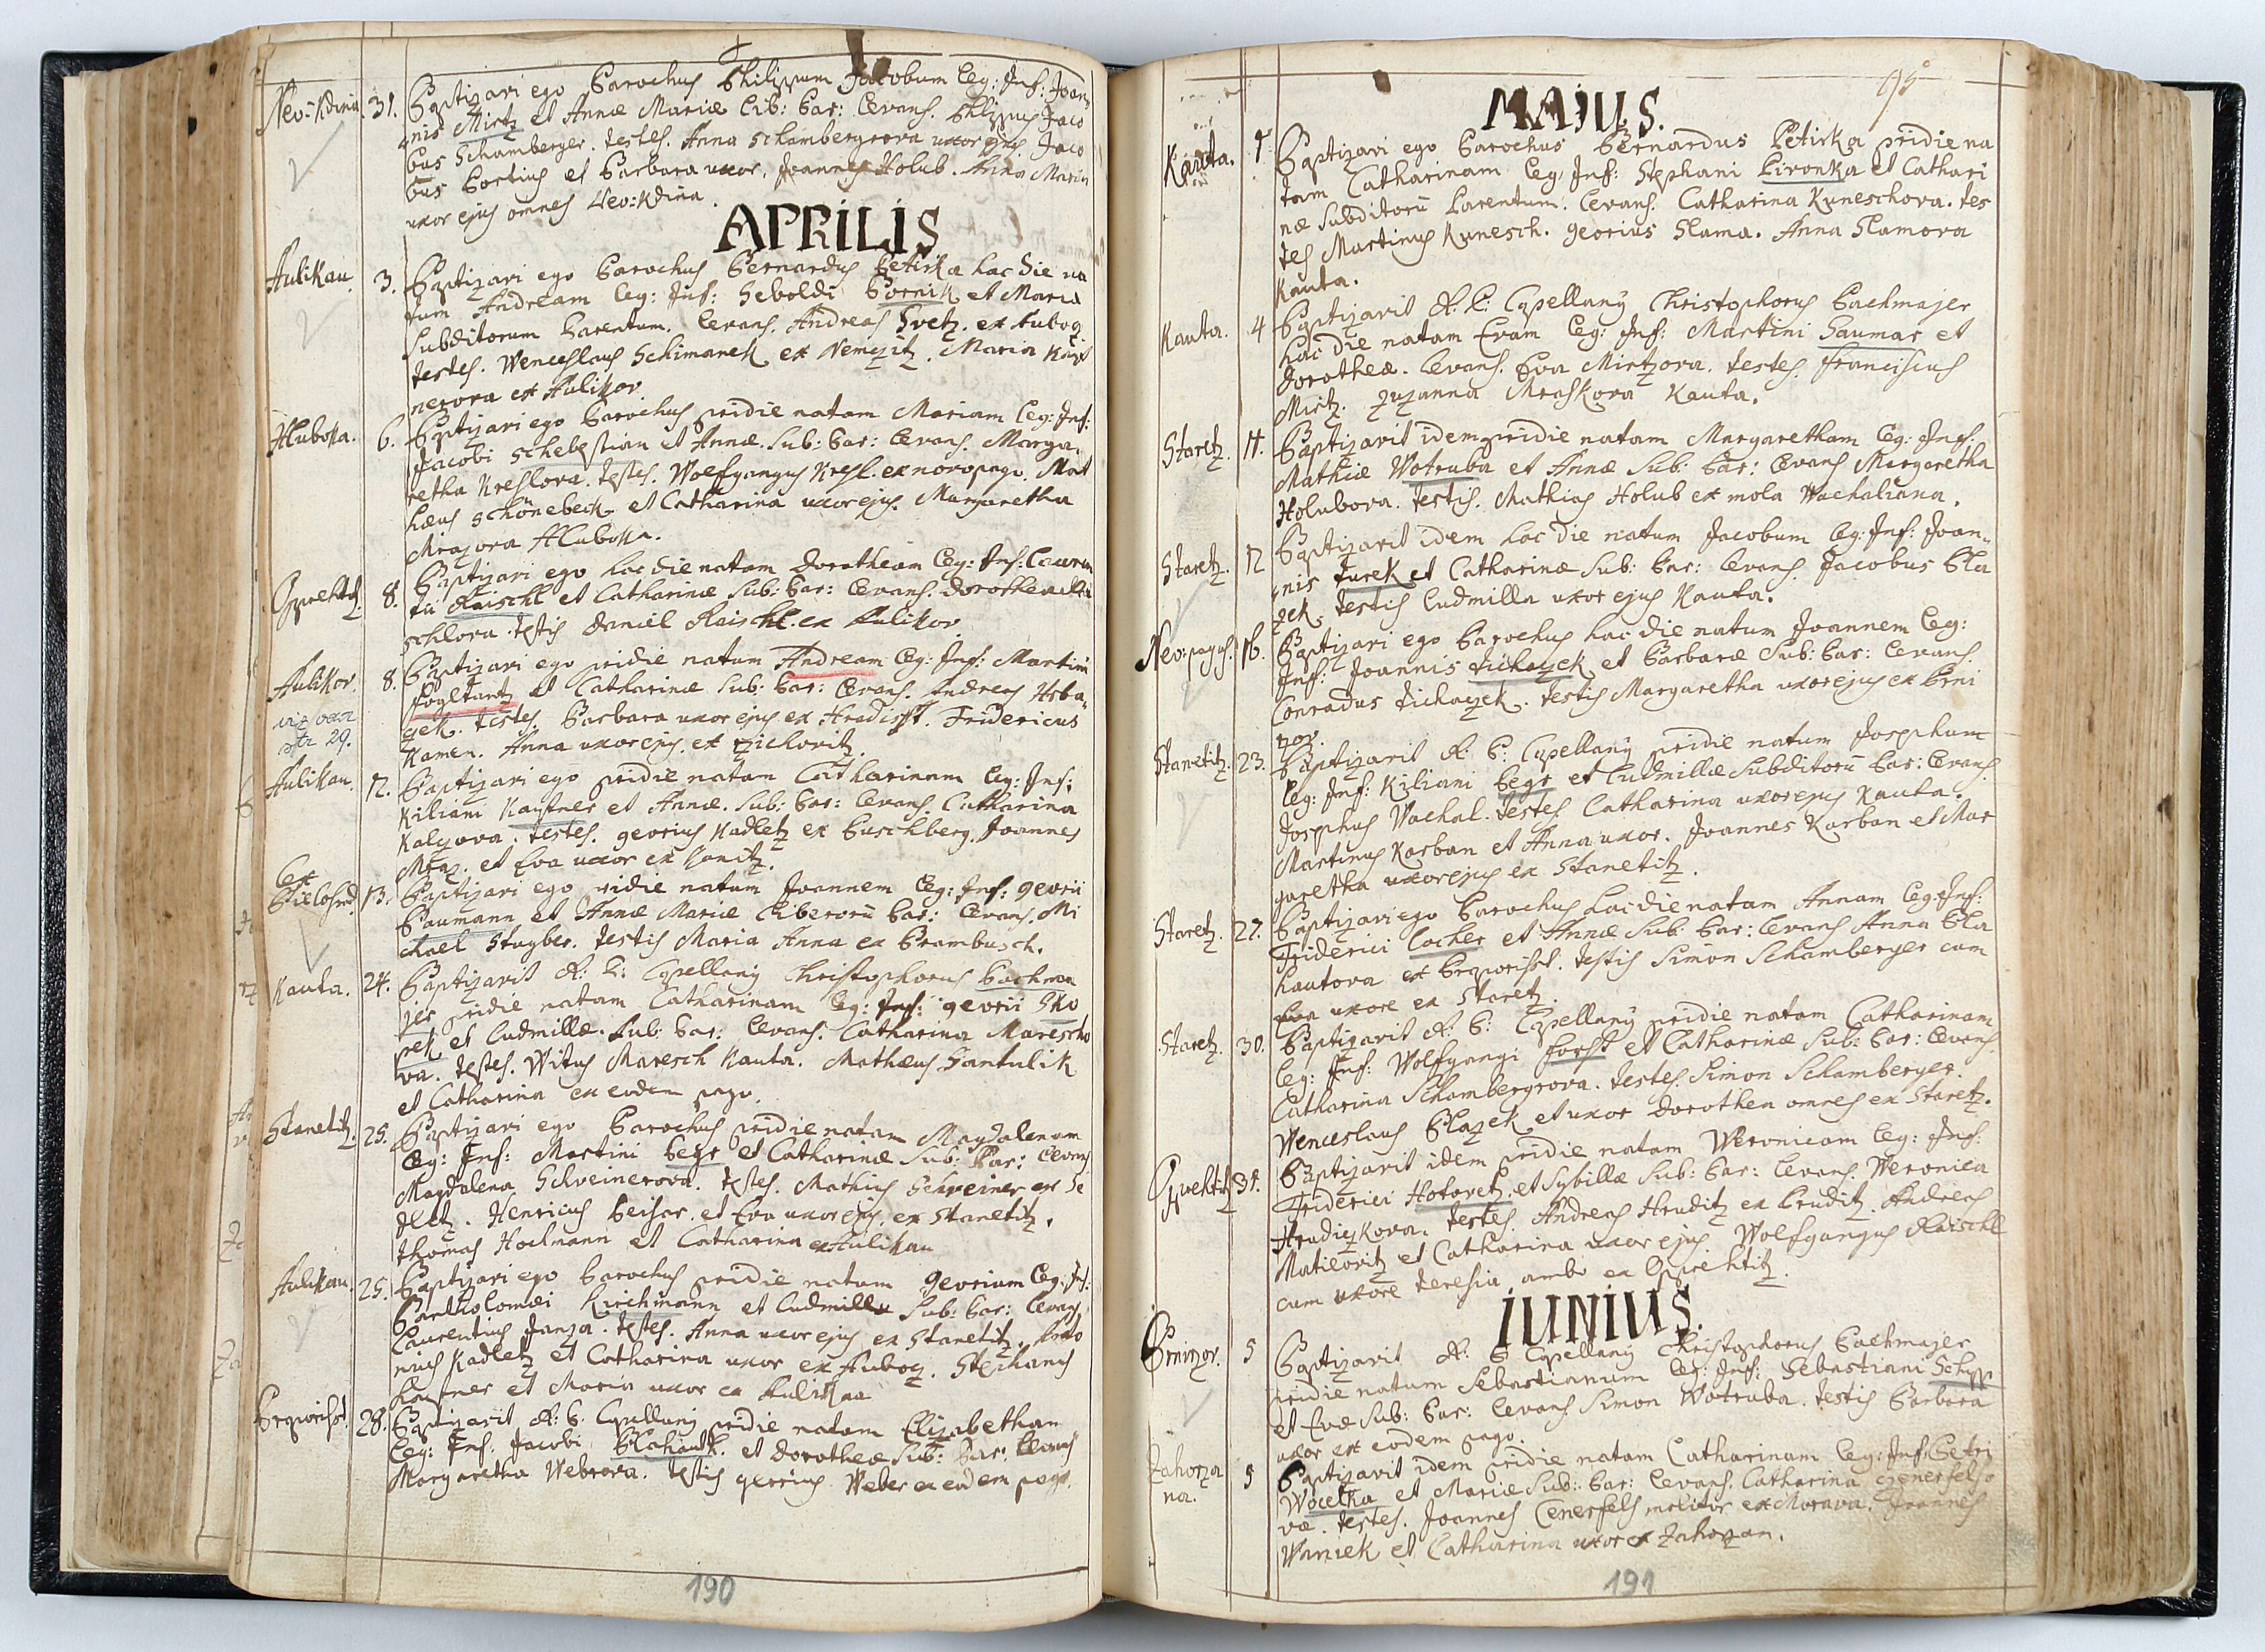 Neo-Kdinii 31. Baptizavi ego Parochus Philippum Jacobum leg: Inf: Joan
nis Mirtz et Annæ Mariæ Lib: Par: Levans. Philippus Jaco
bus Schamberger. testes. Anna Schambergrova uxor ejus Jaco
bus Bortius et Barbara uxor, Joannes Holub. Anna Maria
uxor ejus omnes Neo:Kdina.
APRILIS
Aulikau. 3. Baptizavi ego Parochus Bernardus Petirka hac die na
tum Andream leg: Inf: Seboldi Pornik et Maria
subditorum Parentum. Levans. Andreas Svetz. ex Lubog
testes. Wenceslaus Schimanek ex Nemczitz. Maria
nerova ex Aulikov.
Hluboka. 6. Baptizavi ego Parochus pridie natam Mariam leg: Inf:
Jacobi Schebestian et Annæ. Sub: Par: Levans. Marga
retha Kreslova. testes. Wolfgangus Kresl. ex novo pago. Mat
hæus Schönebeck et Catharina uxor ejus. Margaretha
Mrazova Hluboka.
8. Baptizavi ego hac die natam Dorotheam leg: Inf: Lauren
tii Raischl et Catharinæ Sub: Par: Levans. Dorothea Rai
schlova. testis Daniel Raischl. ex Aulikov
Aulikov. 8. Baptizavi ego pridie natum Andream leg: Inf: Martini
FoglTantz et Catharinæ Sub: Par: Levans. Andreas Hrba
czek. testes. Barbara uxor ejus ex Hradischt. Fridericus
str 29.
Kamen. Anna uxor ejus. ex Zichovitz.
Aulikau. 12. Baptizavi ego pridie natam Catharinam leg: Inf:
Kiliani Kaustner et Annæ. Sub: Par: Levans. Catharina
Kalzova. testes. Georius Kadletz ex Buschberg. Joannes
Mraz. et Eva uxor ex Janitz.
ex 13. Baptizavi ego pridie natum Joannem leg: Inf: Georii
Baumann et Annæ Mariæ Liberorū Par: Levans. Mi
chael Stuyber. testis Maria Anna ex Brambusch.
Kauta. 24. Baptizavit A. R: Capellanus Christophorus Bachma
jer pridie natam Catharinam leg: Inf: Georii Sko
pek et Ludmillæ. Sub: Par: Levans. Catharina Maresch
va. testes. Witus Maresch Kauta. Mathæus Santulik
et Catharina ex eodem pago.
Stanetitz. 25. Baptizavi ego Parochus pridie natam Magdalenam
leg: Inf: Martini Begr et Catharinæ Sub: Par: Levans
Magdalena Schreinerova. testes. Mathias Schreiner ex Se
dletz. Henricus Beisar. et Eva uxor ejus. ex Stanetitz.
Thomas Hochmann et Catharina ex Aulikau
Aulikau. 25. Baptizavi ego Parochus pridie natum Georium leg: Inf:
Bartholomæi Kirchmann et Ludmilla Sub: Par: Levans
Laurentius Janza. testes. Anna uxor ejus ex Stanetitz. Anto
nius Kadletz et Catharina uxor ex Lubog. Stephanus
et Maria uxor ex Aulikau
28. Baptizavit A. R: Capellanus pridie natam Elizabetham
leg: Inf: Jacobi Blahautk. et Dorotheæ Sub: Par: Levans
Margaretha Webrova. testis Georius Weber ex eodem pago.
190
MAJUS.
Kauta. 1. Baptizavi ego Parochus Bernardus Petirka pridie na
tam Catharinam leg: Inf: Stephani Lironka et Cathari
næ Subditorū Parentum. Levans. Catharina Kuneschova. tes
tes Martinus Kunesch. Georius Slama. Anna Slamova
Kauta.
Kauta. 4 Baptizavit A. R: Capellanus Christophorus Bachmajer
hac die natam Evam leg: Inf: Martini Saumar et
Dorotheæ. Levans. Eva Mirtzova. testes. Franciscus
Mirtz. Zuzanna Mraskova Kauta.
Staretz. 11. Baptizavit idem pridie natam Margaretham leg: Inf:
Mathiæ Wotruba et Annæ Sub: Par: Levans Margaretha
Holubova. testis. Mathias Holub ex mola Wachaliana.
Staretz. 12 Baptizavit idem hac die natum Jacobum leg: Inf: Joan
nis Turek et Catharinæ Sub: Par: Levans. Jacobus Bla
zek. testis Ludmilla uxor ejus Kauta.
Neo:pagus. 16. Baptizavi ego Parochus hac die natum Joannem leg:
Inf: Joannis Tichazek et Barbaræ Sub: Par: Levans.
Conradus Tichaczek. testis Margaretha uxor ejus ex Brni
rzov.
Stanetitz. 23. Baptizavit A: R: Capellanus pridie natum Josephum
leg: Inf: Kiliani Begr et Ludmillæ Subditorū Par: Levans.
Josephus Wachal. testes. Catharina uxor ejus Kauta.
Martinus Karban et Anna uxor. Joannes Karban et Mar
garetha uxor ejus ex Stanetitz.
Staretz. 27. Baptizavi ego Parochus hac die natam Annam leg: Inf:
Friderici Locher et Annæ Sub: Par: Levans Anna Bla
hautova ex. testis Simon Schamberger cum
Eva uxore ex Staretz.
Staretz. 30. Baptizavit A: R: Capellanus pridie natam Catharinam
leg: Inf: Wolfgangi Forst et Catharinæ Sub: Par: Levans.
Catharina Schambergrova. testes. Simon Schamberger.
Wenceslaus Blazek et uxor Dorothea omnes ex Staretz.
31. Baptizavit idem pridie natam Weronicam leg: Inf:
Friderici Hotovetz. et Sybillæ Sub: Par: Levans. Weronica
Hrudiczkova. testes. Andreas Hruditz ex Pruditz. Andreas
Matieovitz et Catharina uxor ejus Wolfgangus Raischl
cum uxore Teresia ambo ex Oprechtitz.
JUNIUS.
Brnirzov. 5 Baptizavit A: R Capellanus Christophorus Bachmajer
pridie natum Sebastianum leg: Inf: Sebastiani
et Evæ Sub: Par: Levans Simon Wotruba. testis Barbara
uxor ex eodem pago.
Zahorza 5 Baptizavit idem pridie natam Catharinam leg: Inf: Petri
na. Wocelka et Mariæ Sub: Par: Levans. Catharina Czenerfelso
væ. testes. Joannes Cenerfels molitor ex Morava. Joannes
Waniek et Catharina uxor ex Zahorzan.
191